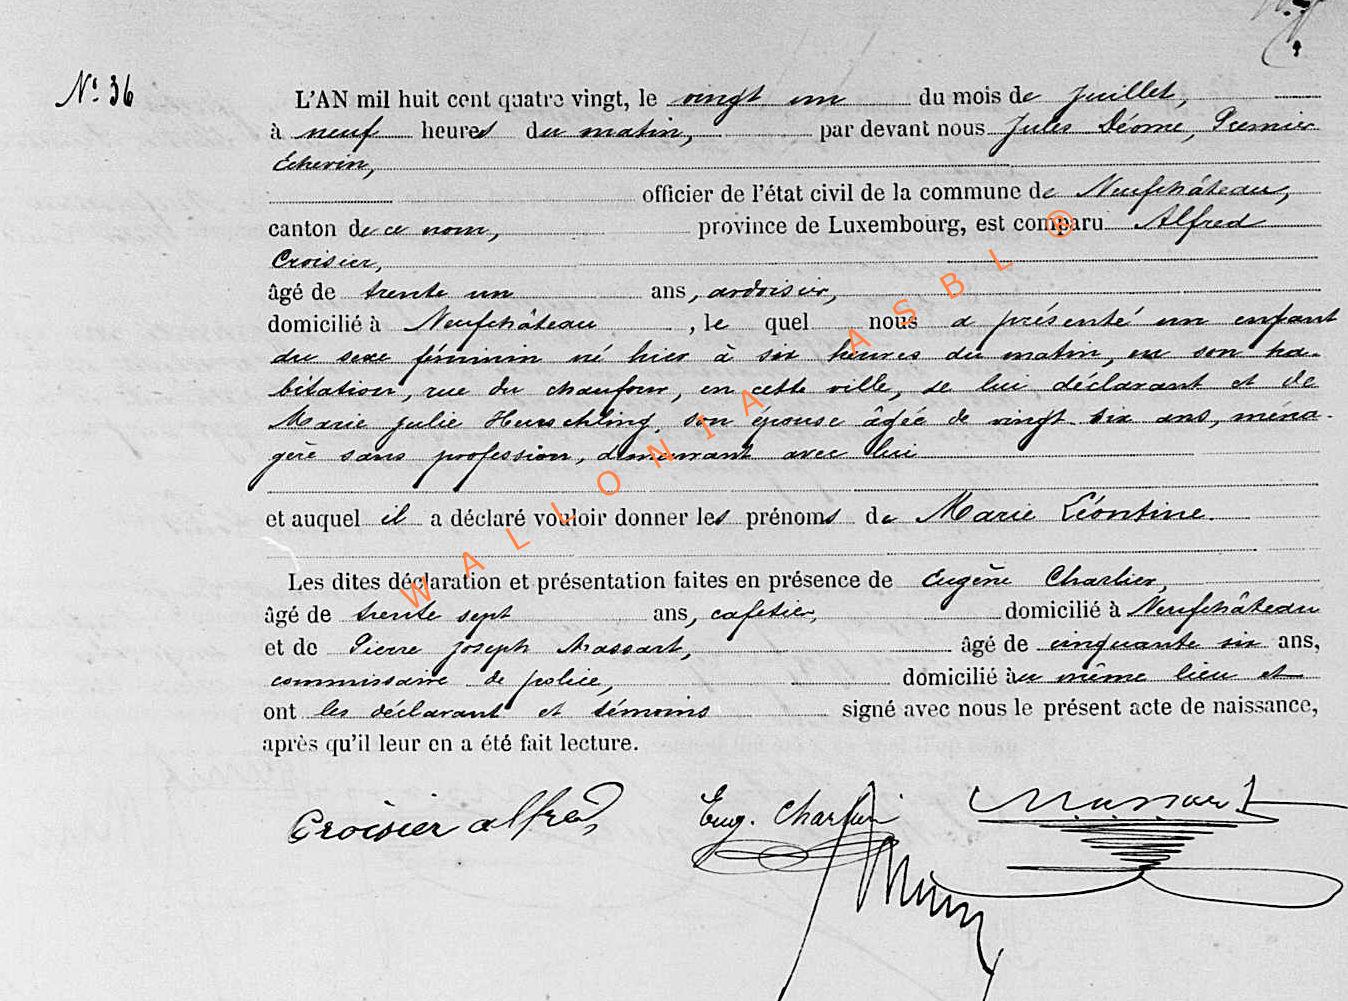 N° 36
L'AN mil huit cent quatre vingt, le vingt un du mois de juillet,
à neuf heures du matin, par devant nous Jules Déome, Premier
Echevin,
officier de l'état civil de la commune de Neufchâteau,
canton de ce nom, province de Luxembourg, est comparu Alfred
Croisier,
âgé de trente un ans, ardoisier,
domicilié à Neufchâteau, le quel nous a présenté un enfant
du sexe féminin né hier à six heures du matin, en son ha-
bitation, rue du chaufour, en cette ville, de lui déclarant et de
Marie Julie Hurschling, son épouse âgée de vingt six ans, ména-
gère sans profession, demeurant avec lui
et auquel il a déclaré vouloir donner les prénoms de Marie Léontine.
Les dites déclaration et présentation faites en présence de Eugène Charlier,
âgé de trente sept ans, cafetier, domicilié à Neufchâteau
et de Pierre Joseph Massart, âgé de cinquante six ans,
commissaire de police, domicilié au même lieu et
ont les déclarant et témoins signé avec nous le présent acte de naissance,
après qu'il leur en a été fait lecture.
Croisier alfred Eug. Charlier Massart
WALLONIA ASBL ®